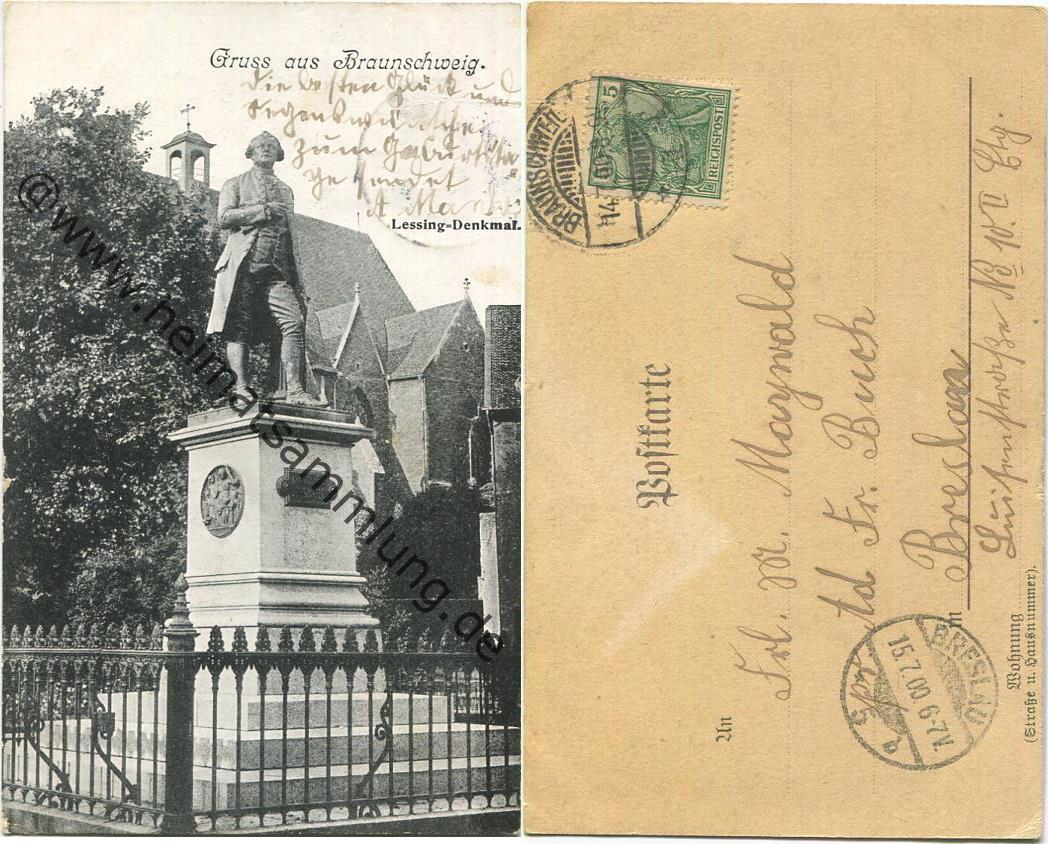 Gruss aus Braunschweig.
Die besten Glück und
Segenswünsche
zum Geburtsta
ge sendet
A.
Lessing-Denkmal.
@www.heimatsammlung.de
BRAUNSCHWEIG
14.
5
REICHSPOST
Postkarte
An
Frl. M. Maywald
Fr. Buch
Breslau
Luisenstraße No 10. II Etg.
Wohnung
(Straße u. Hausnummer).
BRESLAU
15.7.00
7-9V.